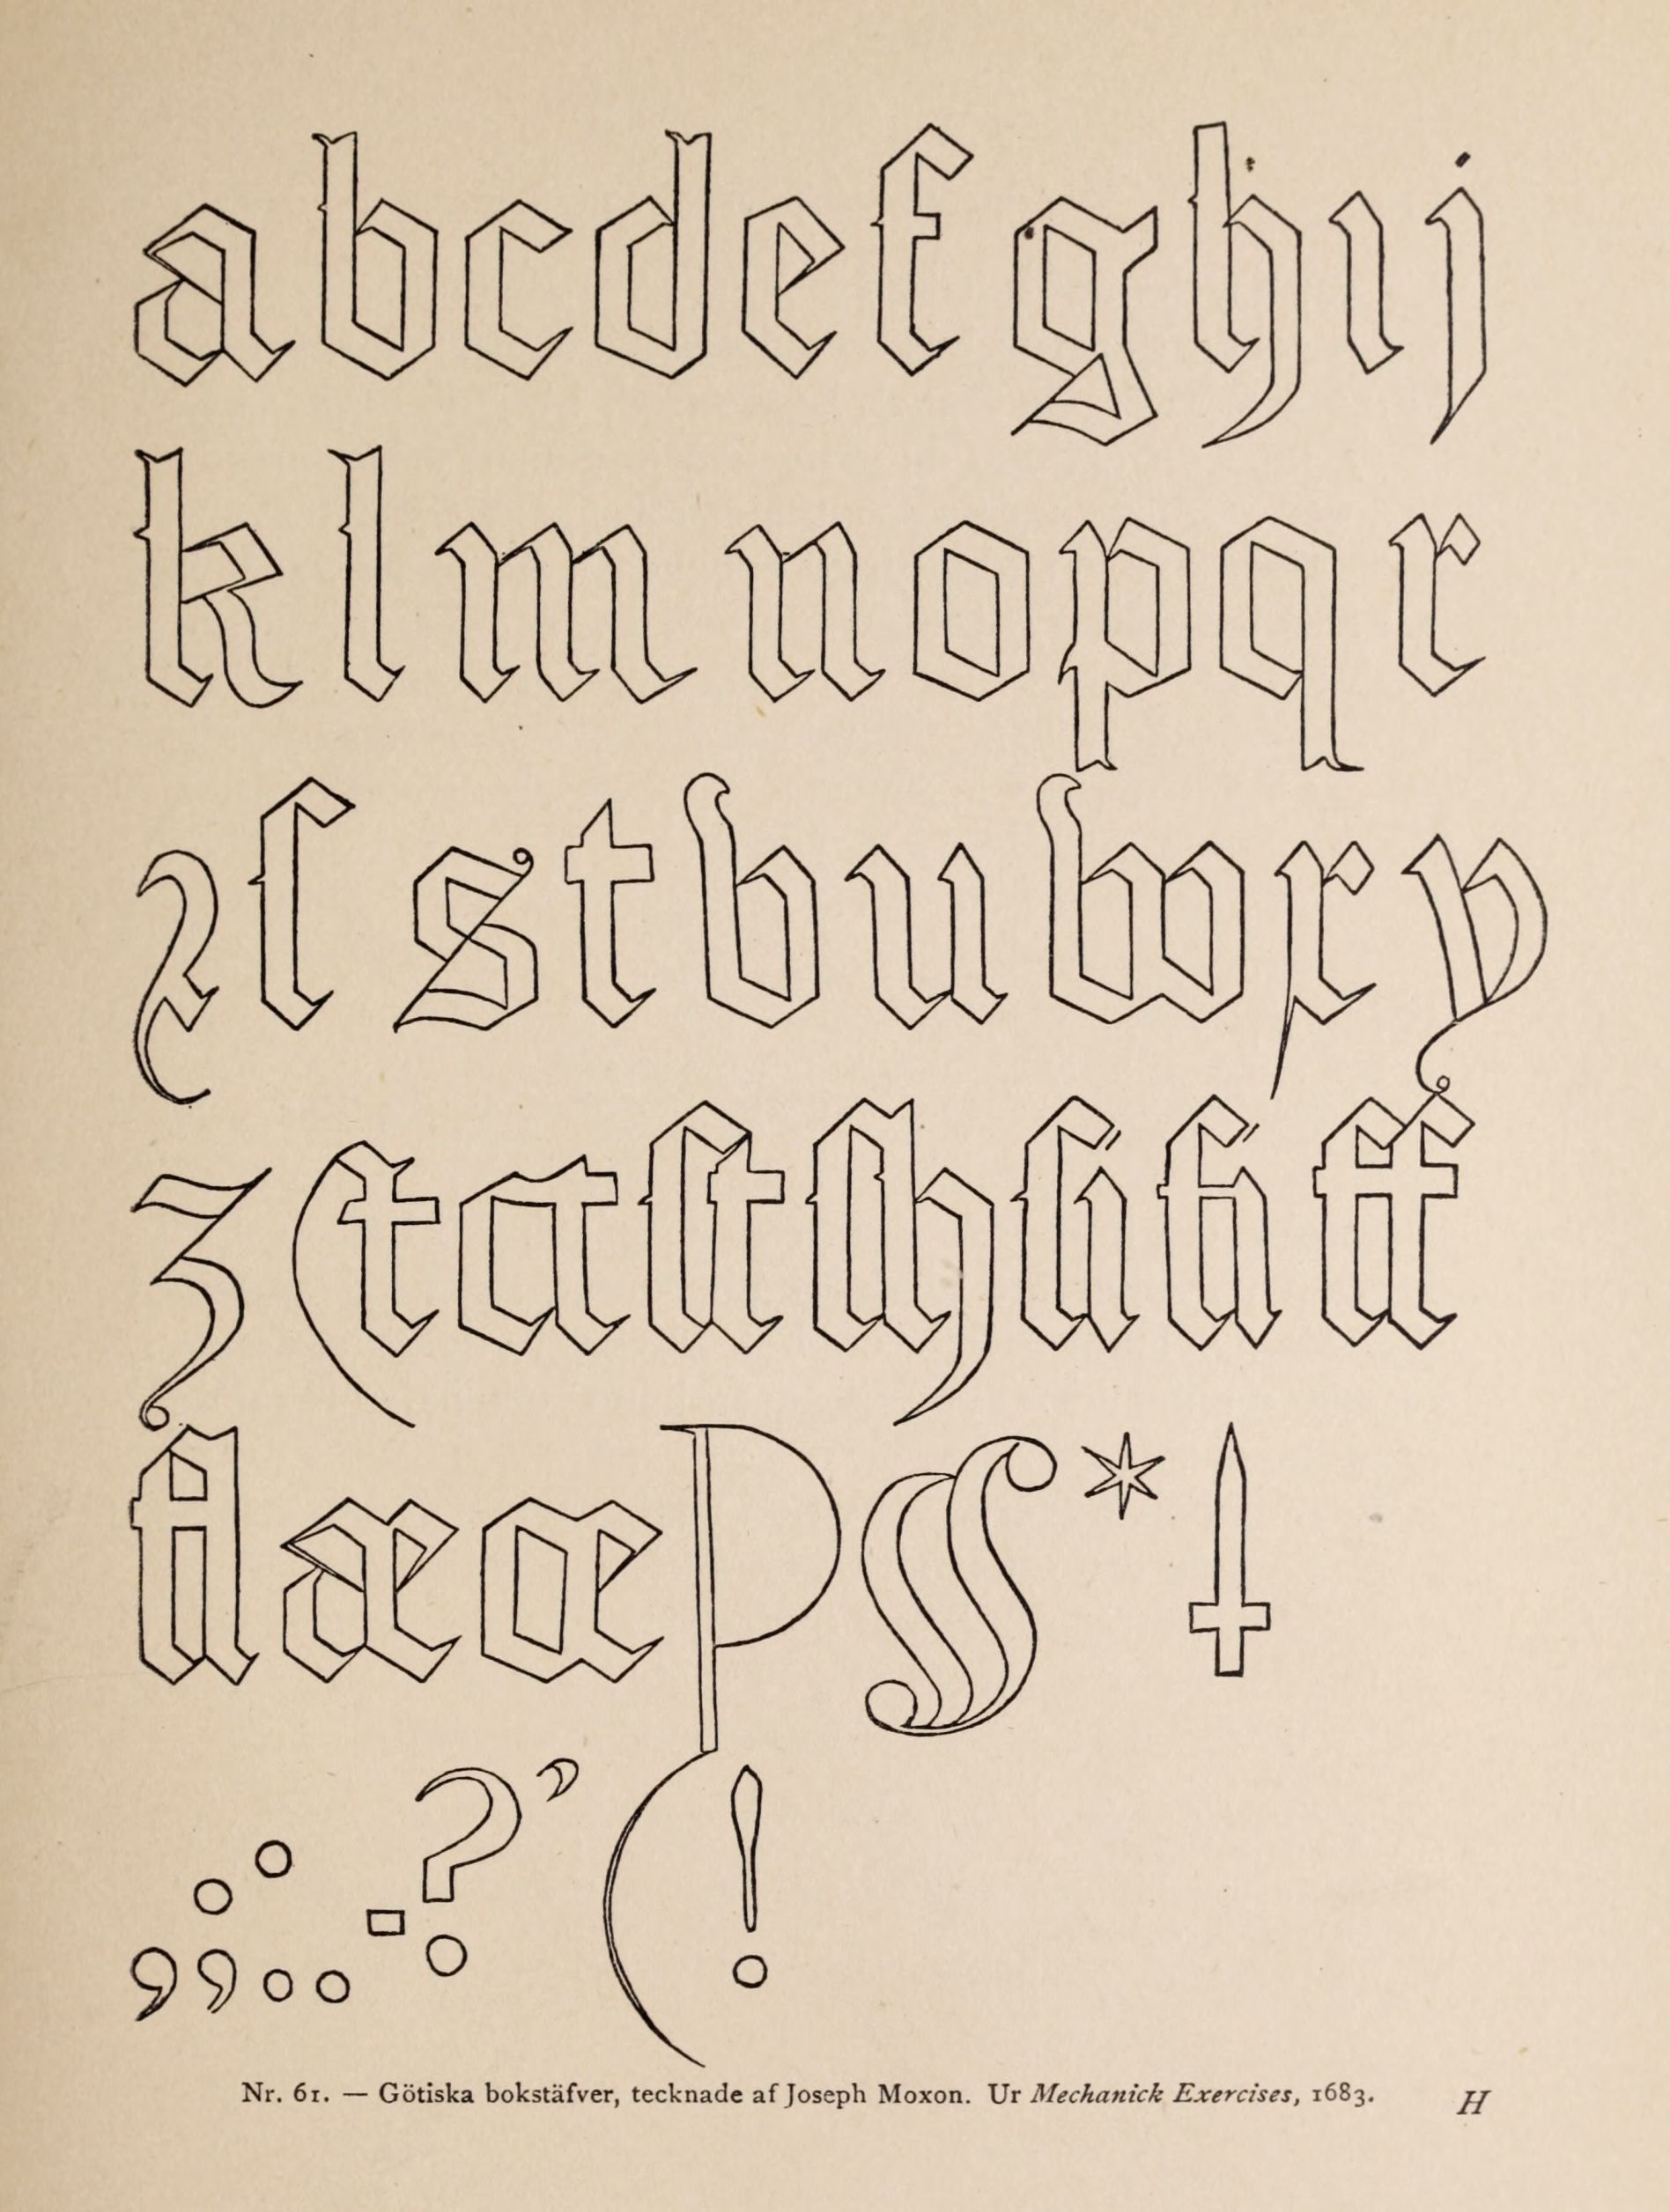 a b c d e f g h i j
k l m n o p q r
ꝛ ſ s t v u w x y
z ꝶ ct ſt ſh ſi fi ff
fl æ œ P § * †
, ; : . - ? ’ ( !
Nr. 61. — Götiska bokstäfver, tecknade af Joseph Moxon. Ur Mechanick Exercises, 1683. H